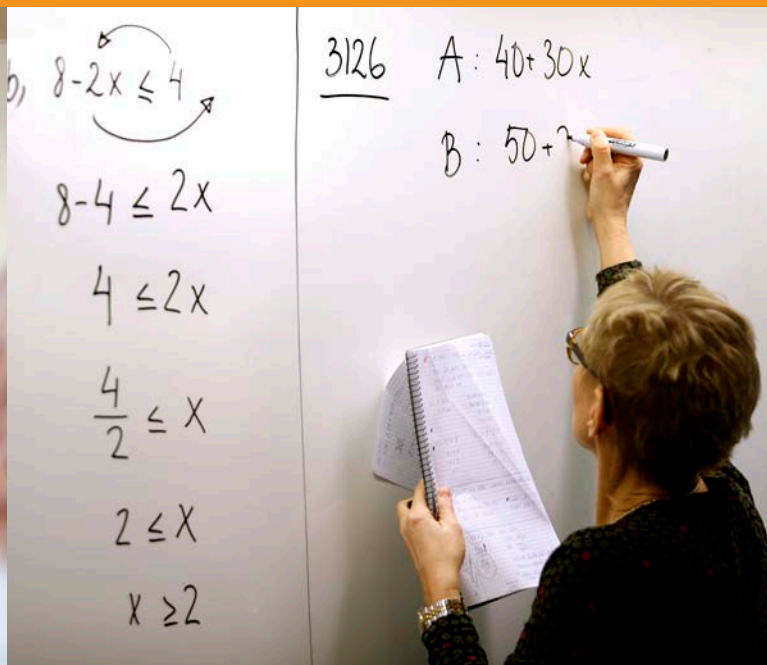 b, 8-2x ≤ 4
8-4 ≤ 2x
4 ≤ 2x
4
2 ≤ x
2 ≤ x
x ≥ 2
3126 A: 40+30x
B: 50+